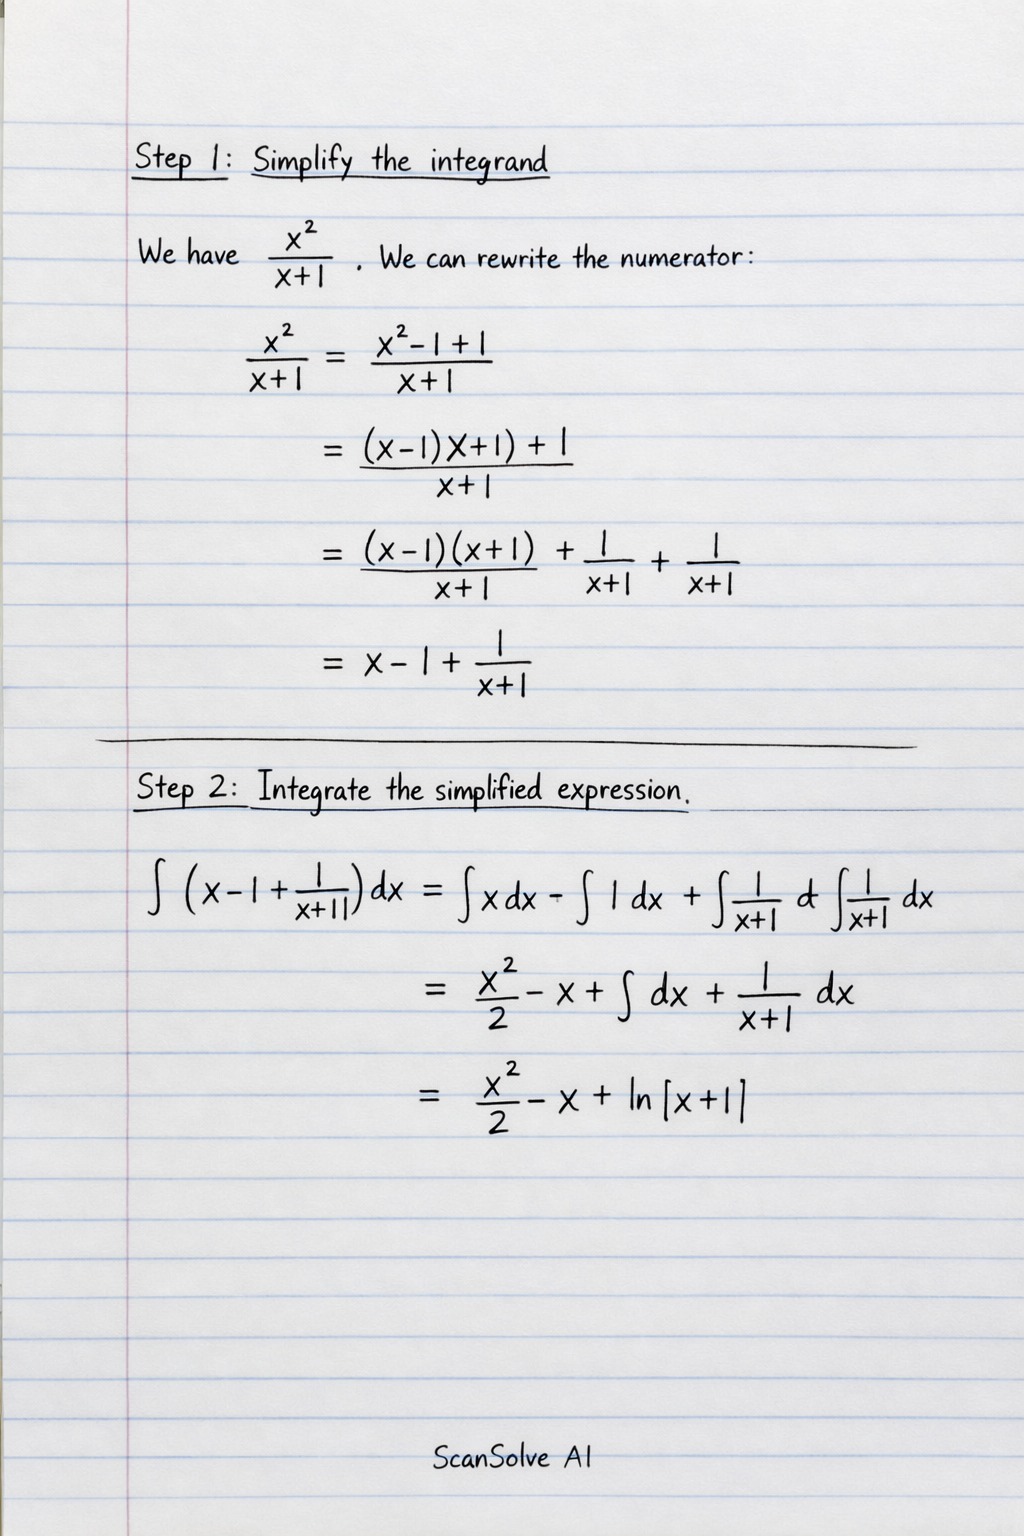 Step 1: Simplify the integrand
We have x²/(x+1) . We can rewrite the numerator:
x²/(x+1) = (x²-1+1)/(x+1)
= ((x-1)x+1)+1)/(x+1)
= ((x-1)(x+1))/(x+1) + 1/(x+1) + 1/(x+1)
= x-1+ 1/(x+1)
Step 2: Integrate the simplified expression.
∫ (x-1+ 1/(x+11)) dx = ∫ x dx - ∫ 1 dx + ∫ 1/(x+1) d ∫ 1/(x+1) dx
= x²/2 - x + ∫ dx + 1/(x+1) dx
= x²/2 - x + ln⌈x+1⌉
ScanSolve AI